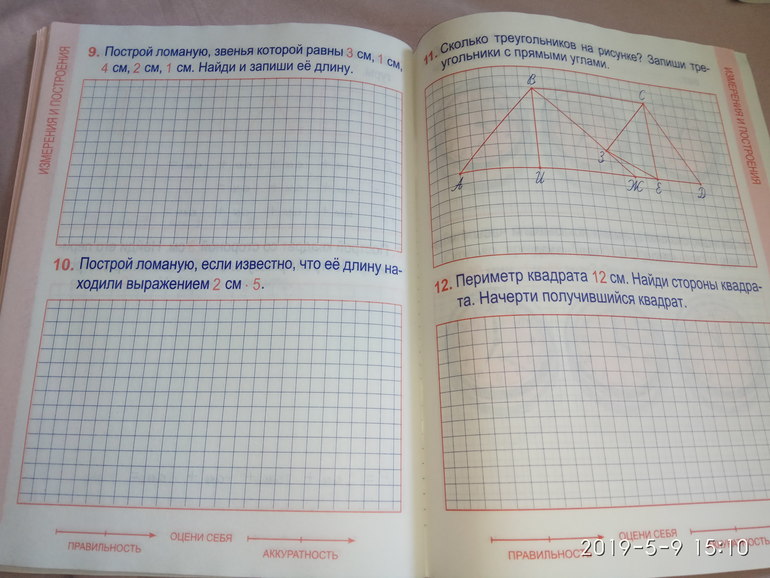 ИЗМЕРЕНИЯ И ПОСТРОЕНИЯ
9. Построй ломаную, звенья которой равны 3 см, 1 см,
4 см, 2 см, 1 см. Найди и запиши её длину.
10. Построй ломаную, если известно, что её длину на-
ходили выражением 2 см · 5.
ОЦЕНИ СЕБЯ
ПРАВИЛЬНОСТЬ
АККУРАТНОСТЬ
11. Сколько треугольников на рисунке? Запиши тре-
угольники с прямыми углами.
B
C
З
А
И
Ж
Е
D
ИЗМЕРЕНИЯ И ПОСТРОЕНИЯ
12. Периметр квадрата 12 см. Найди стороны квадра-
та. Начерти получившийся квадрат.
ОЦЕНИ СЕБЯ
ПРАВИЛЬНОСТЬ
2019-5-9 15:10